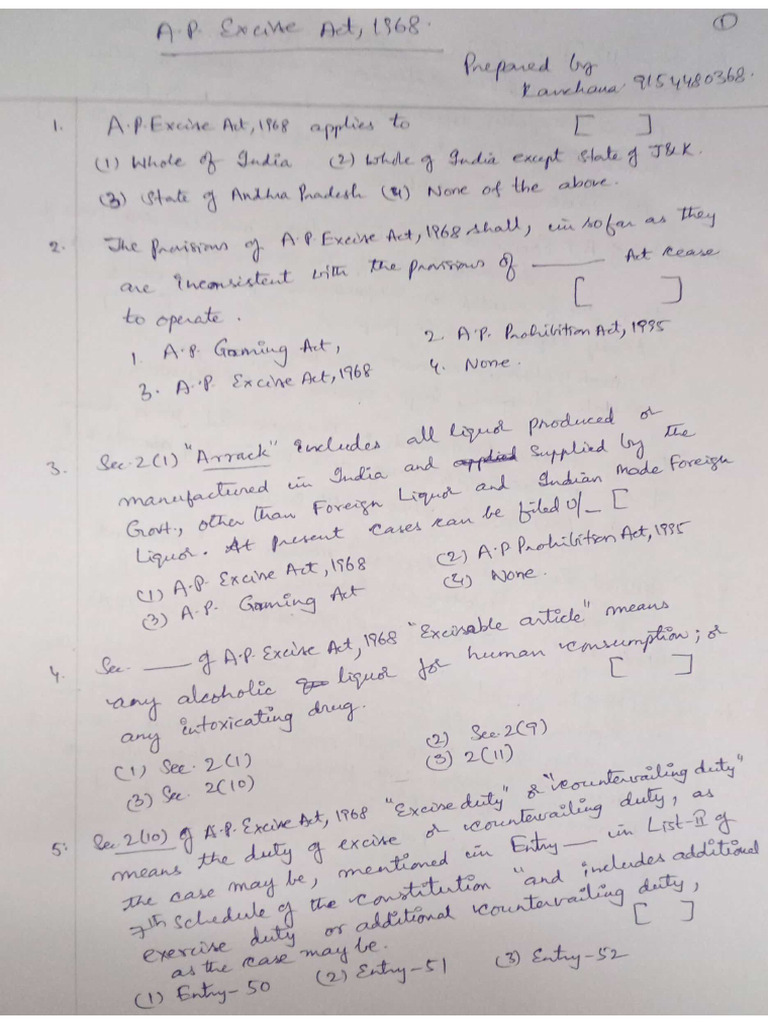 A.P. Excise Act, 1968.
1
Prepared by
Kanchana 9154480368.
1. A.P. Excise Act, 1968 applies to [ ]
(1) Whole of India (2) Whole of India except State of J&K.
(3) State of Andhra Pradesh (4) None of the above.
2. The provisions of A.P. Excise Act, 1968 shall, in so far as they
are inconsistent with the provisions of ______ Act cease
to operate. [ ]
1. A.P. Gaming Act, 2. A.P. Prohibition Act, 1995
3. A.P. Excise Act, 1968 4. None.
3. Sec. 2(1) "Arrack" includes all liquor produced or
manufactured in India and applied supplied by the
Govt., other than Foreign Liquor and Indian Made Foreign
Liquor. At present cases can be filed U/_ [
(1) A.P. Excise Act, 1968 (2) A.P Prohibition Act, 1995
(3) A.P. Gaming Act (4) None.
4. Sec. ____ of A.P. Excise Act, 1968 "Excisable article" means
any alcoholic liquor for human consumption; or
any intoxicating drug. [ ]
(1) Sec. 2(1) (2) Sec. 2(9)
(3) Sec. 2(10) (3) 2(11)
5: Sec 2(10) of A.P. Excise Act, 1968 "Excise duty" & "countervailing duty"
means the duty of excise or countervailing duty, as
the case may be, mentioned in Entry ___ in List-II of
7th Schedule of the Constitution "and includes additional
exercise duty or additional countervailing duty,
as the case may be. [ ]
(1) Entry-50 (2) Entry-51 (3) Entry-52